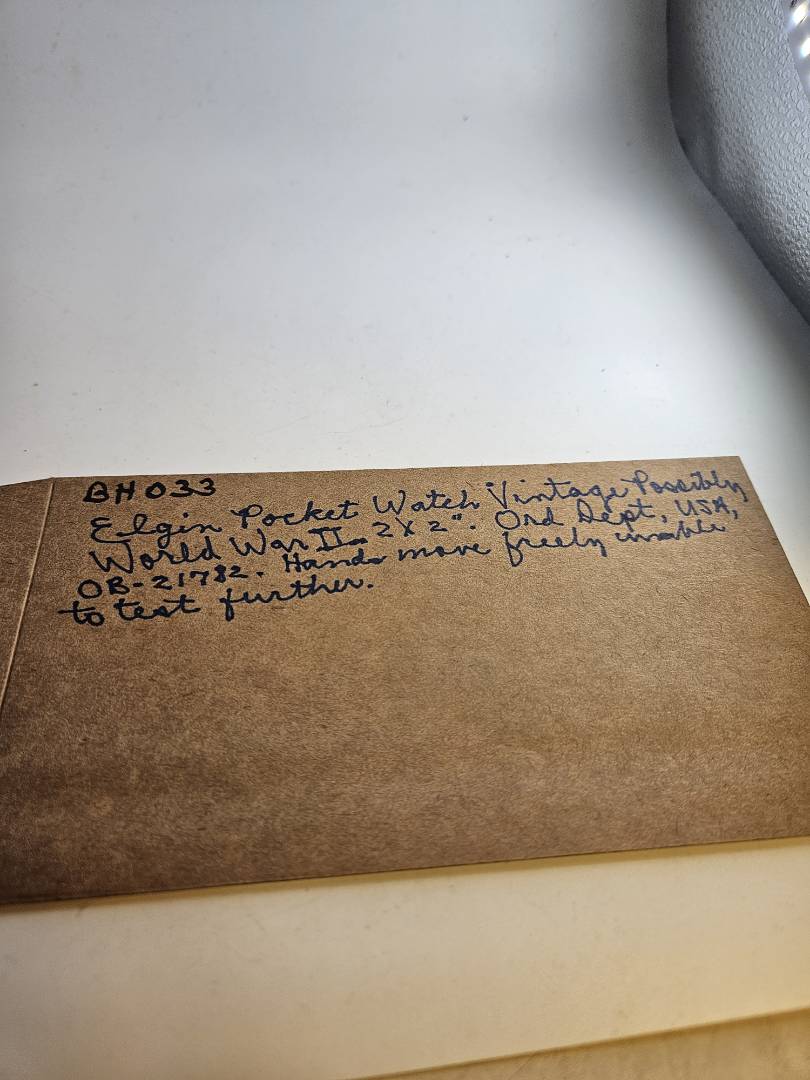 BH033
Elgin Pocket Watch Vintage Possibly
World War II. 2 X 2". Ord Dept, USA,
OB-21782. Hands move freely unable
to test further.